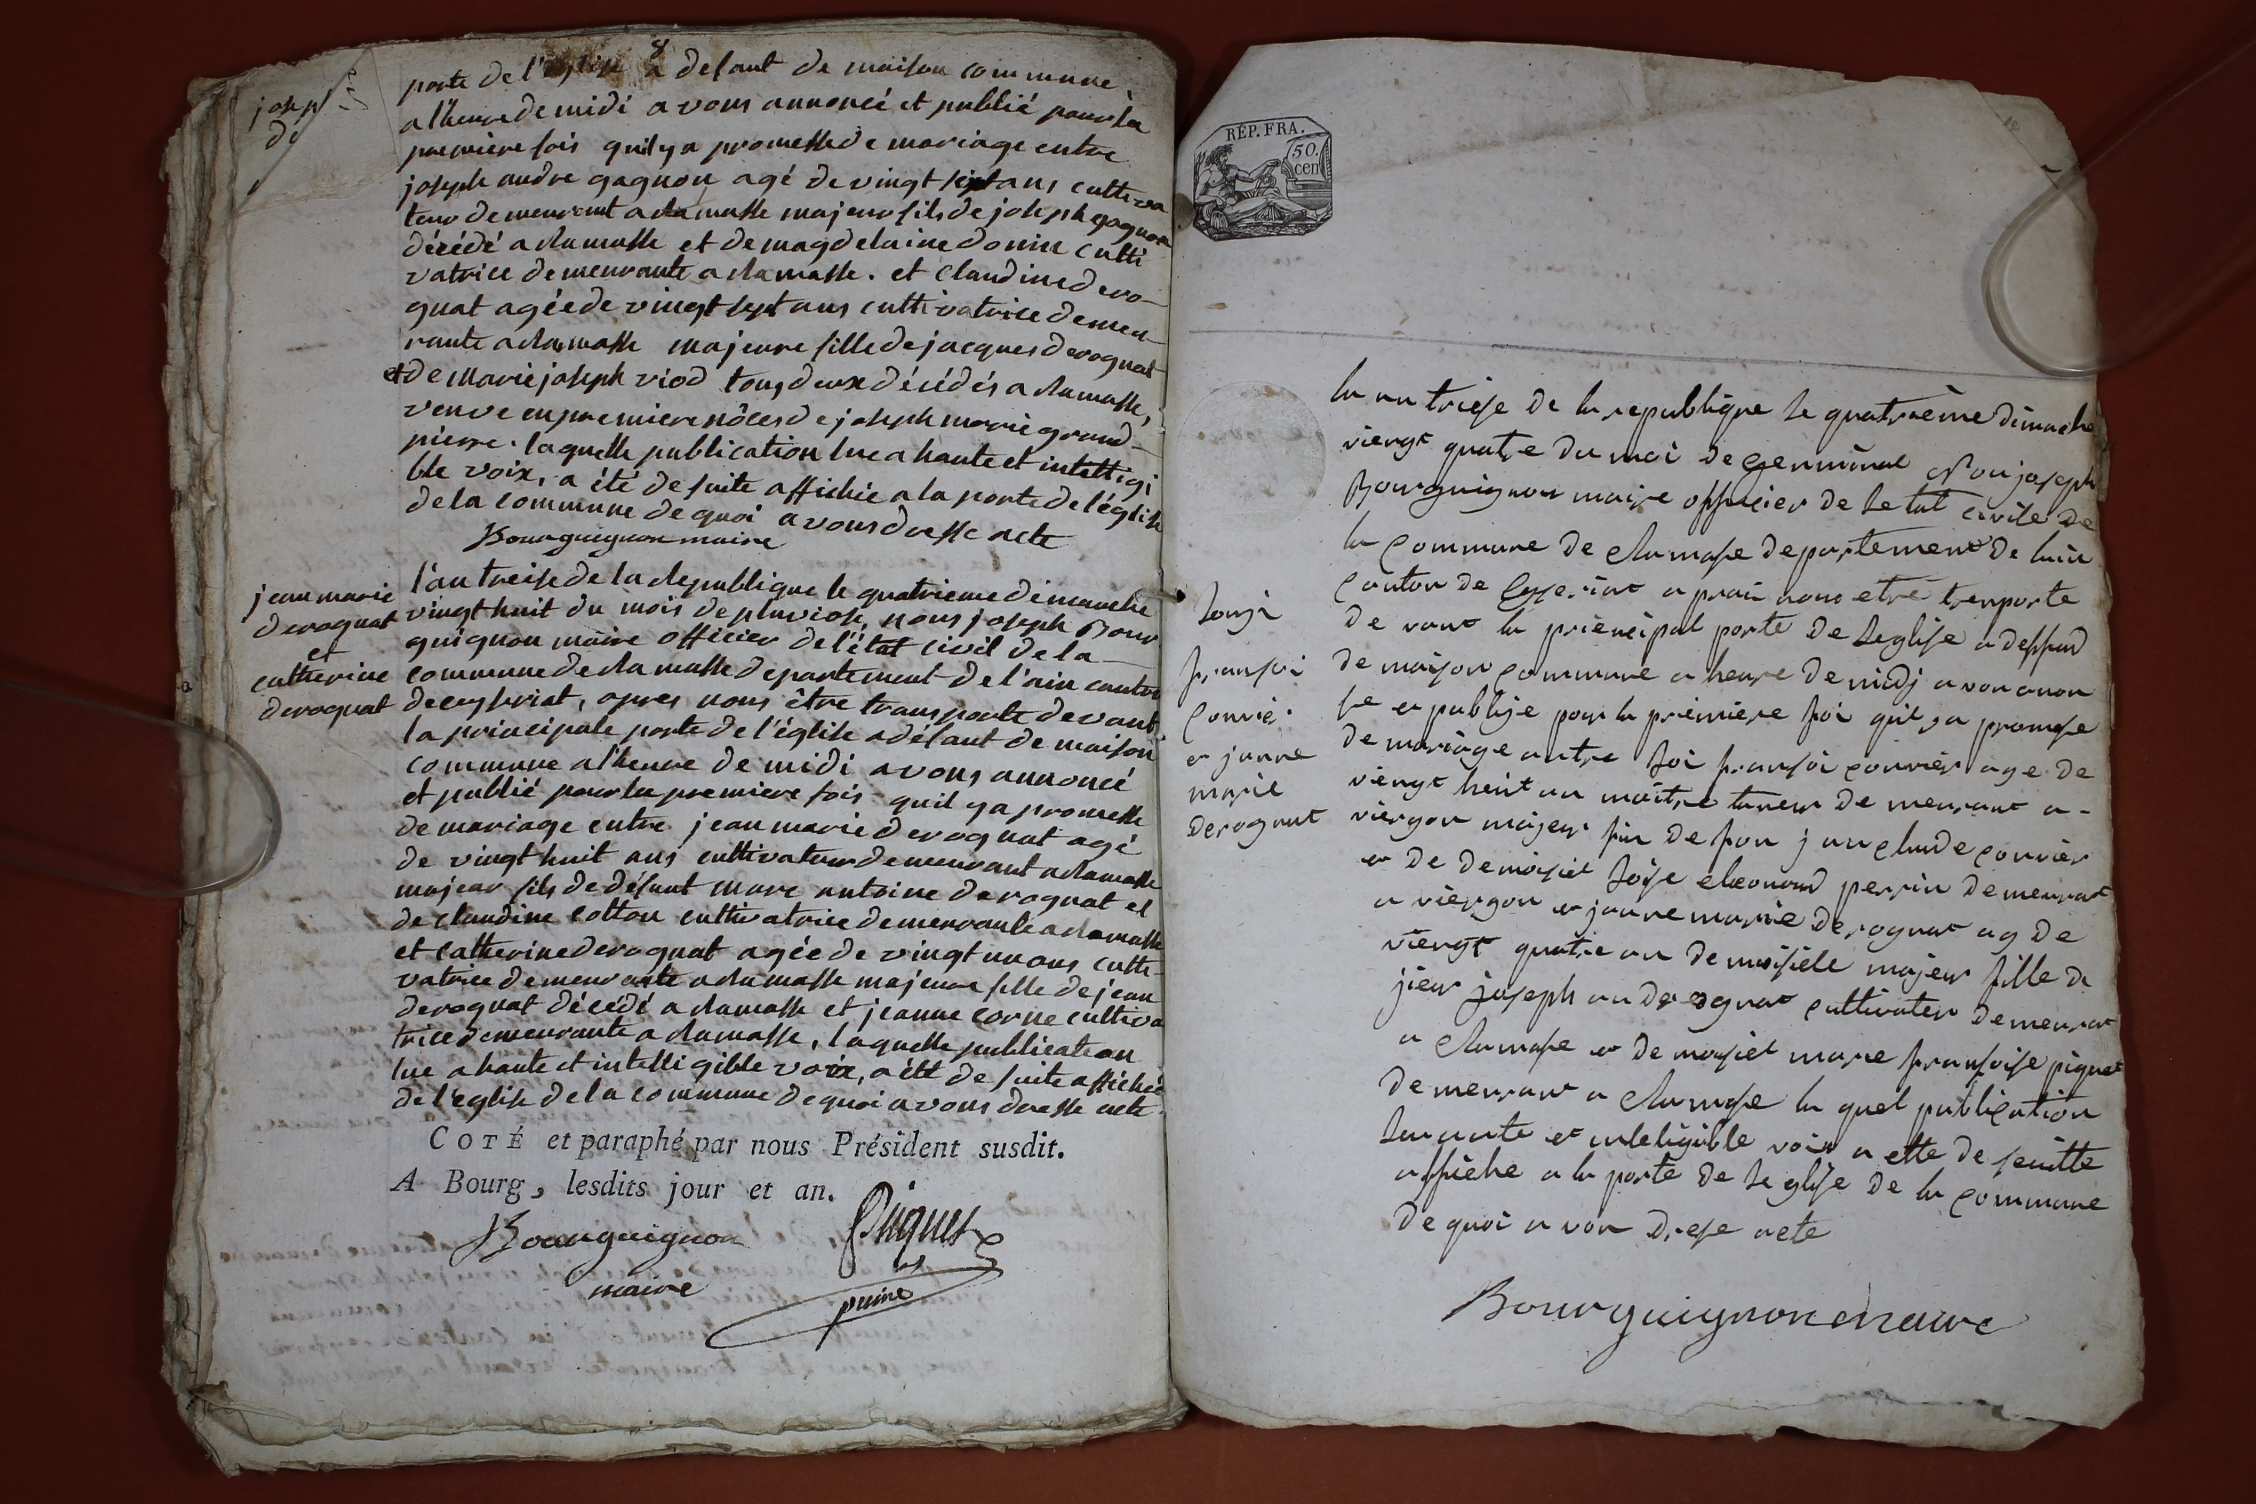 8
joseph
de
porte de l'église a defaut de maison commune
a l'heure de midi avons annoncé et publié pour la
premiere fois quil y a promesse de mariage entre
joseph andre gagnon agé de vingt sept ans cultiva
teur demeurant a ramasse majeur fils de joseph gagnon
décédé a ramasse et de magdelaine donin culti
vatrice demeurante a ramasse. et claudine dero-
gnat agée de vingt sept ans cultivatrice demeu-
rante a ramasse majeure fille de jacques derognat
et de marie joseph viod tous deux décédés a ramasse,
veuve en premiere nôces de joseph marie grand-
pierre. laquelle publication lue a haute et intelligi
ble voix, a été de suite affichée a la porte de l'église
de la commune de quoi avons dressé acte
Bourguignon maire
jean marie
derognat
et
catherine
derognat
l'an treise de la republique le quatrieme dimanche
vingt huit du mois de pluviose, nous joseph Bour
guignon maire officier de l'état civil de la
commune de ramasse departement de l'ain canton
de ceyseriat, apres nous être transporté devant
la principale porte de l'église a défaut de maison
commune a l'heure de midi avons annoncé
et publié pour la premiere fois quil y a promesse
de mariage entre jean marie derognat agé
de vingt huit ans cultivateur demeurant a ramasse
majeur fils de défunt marc antoine derognat et
de claudine cotton cultivatrice demeurante a ramasse
et catherine derognat agée de vingt un ans culti-
vatrice demeurante a ramasse majeure fille de jean
derognat décédé a ramasse et jeanne corne cultiva
trice demeurante a ramasse, laquelle publication
lue a haute et intelligible voix, a été de suite affichée
de l'eglise de la commune de quoi avons dressé acte.
COTÉ et paraphé par nous Président susdit.
A Bourg, lesdits jour et an.
Bourguignon
maire
RÉP. FRA.
50.
cen
la an treise de la republique le quatrième dimache
viengt quatre du moi de germinal Nou joseph
Bourguignon maire officier de le tat civile de
la commune de Ramase departement de lain
canton de Ceyseriat a prai nous etre trenporte
de vant la priencipal porte de leglise a deffaud
de maison commune a heure de midj a von anon
se et publije pour la premiere foi quil ya promese
de mariage antre loi fransoi couvier age de
viengt heit an maitre taneur de meurant a -
viergon majeur fis de fon jan claude couvier
et de demoisiel loise eleonord perrin demeurat
a viergon et janne marie derognat ag de
viengt quatre an demoisiele majeur fille de
sieur joseph an derognat cultivateur demeurat
a Ramase et de moisiel marie fransoise piquet
demeurant a Ramase la quel publication
lu aute et inteligible voix a ette de seuitte
affiche a la porte de leglise de la commune
de quoi a von drese acte
loui
fransoi
couvié
et janne
marie
derognat
Bourguignon maire